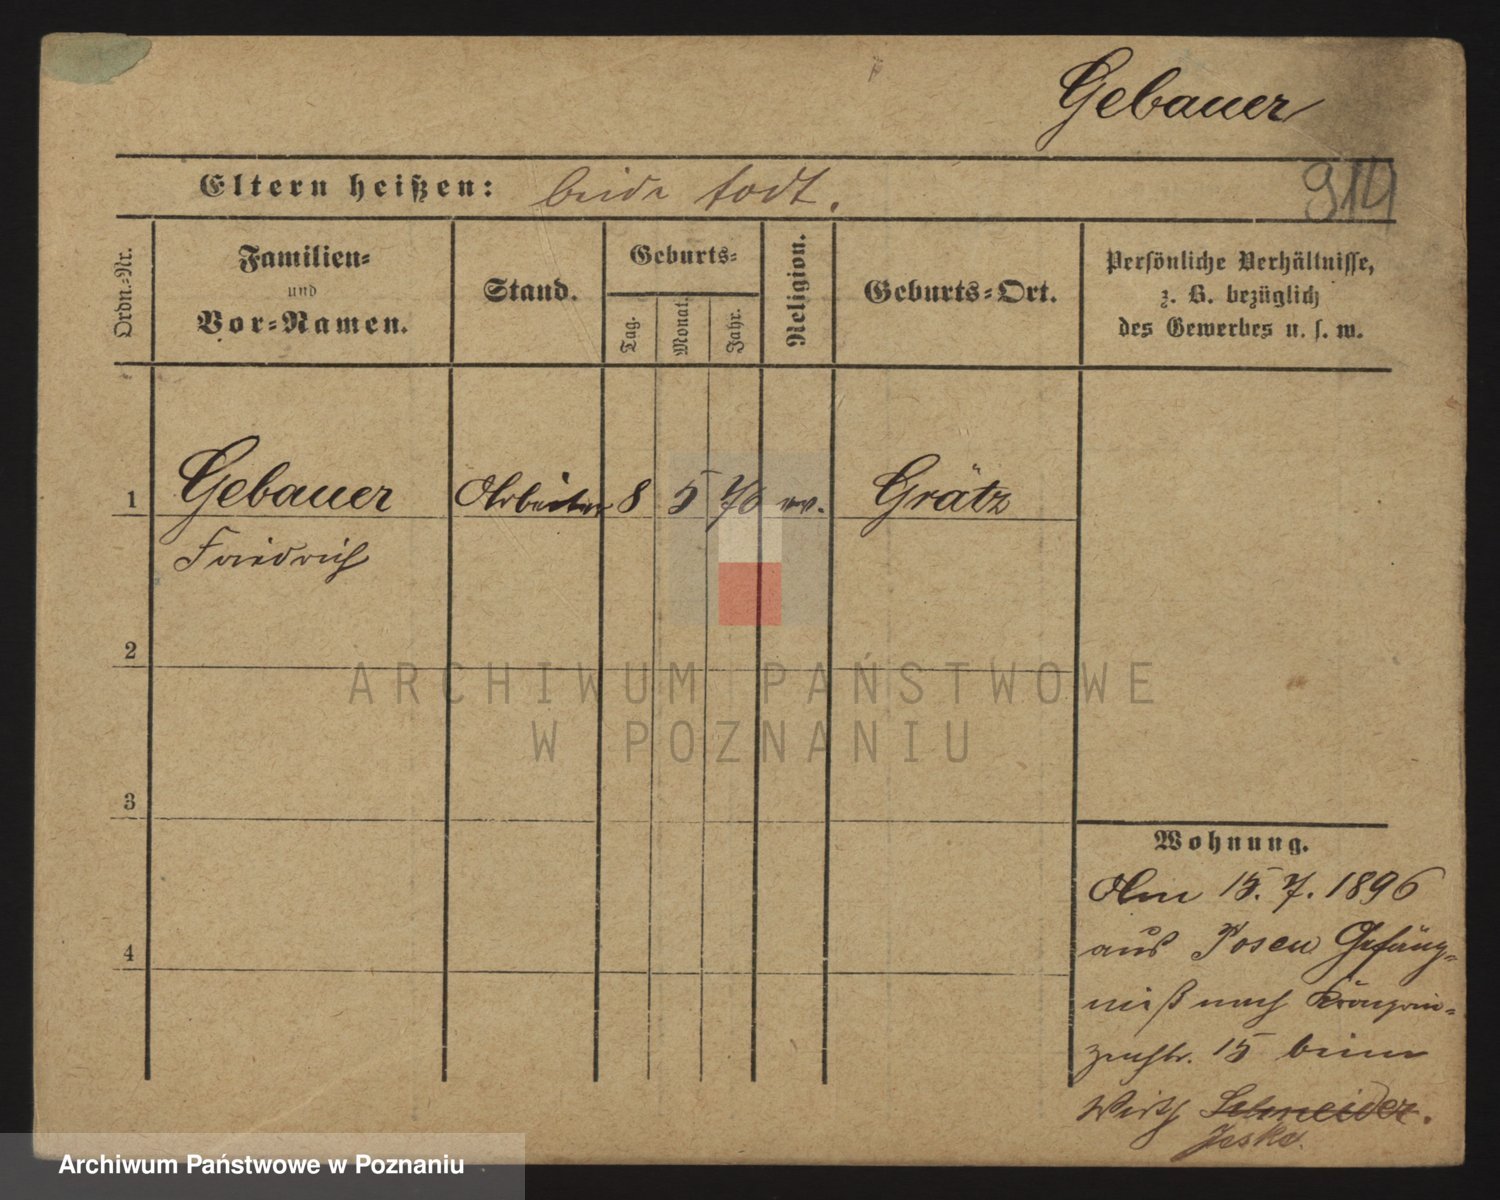 Gebauer
914
Eltern heißen: beide todt.
Ordn.-Nr.
Familien-
und
Vor-Namen.
Stand.
Geburts-
Tag.
Monat.
Jahr.
Religion.
Geburts-Ort.
Persönliche Verhältnisse,
z. B. bezüglich
des Gewerbes u. s. w.
1 Gebauer Arbeiter 8 5 76 ev. Grätz
Friedrich
2
3
4
Wohnung.
Am 15. 7. 1896
aus Posen Gefäng-
niß nach Kronprin-
zenstr. 15 beim
Wirth Schneider.
Jeske.
ARCHIWUM PAŃSTWOWE
W POZNANIU
Archiwum Państwowe w Poznaniu